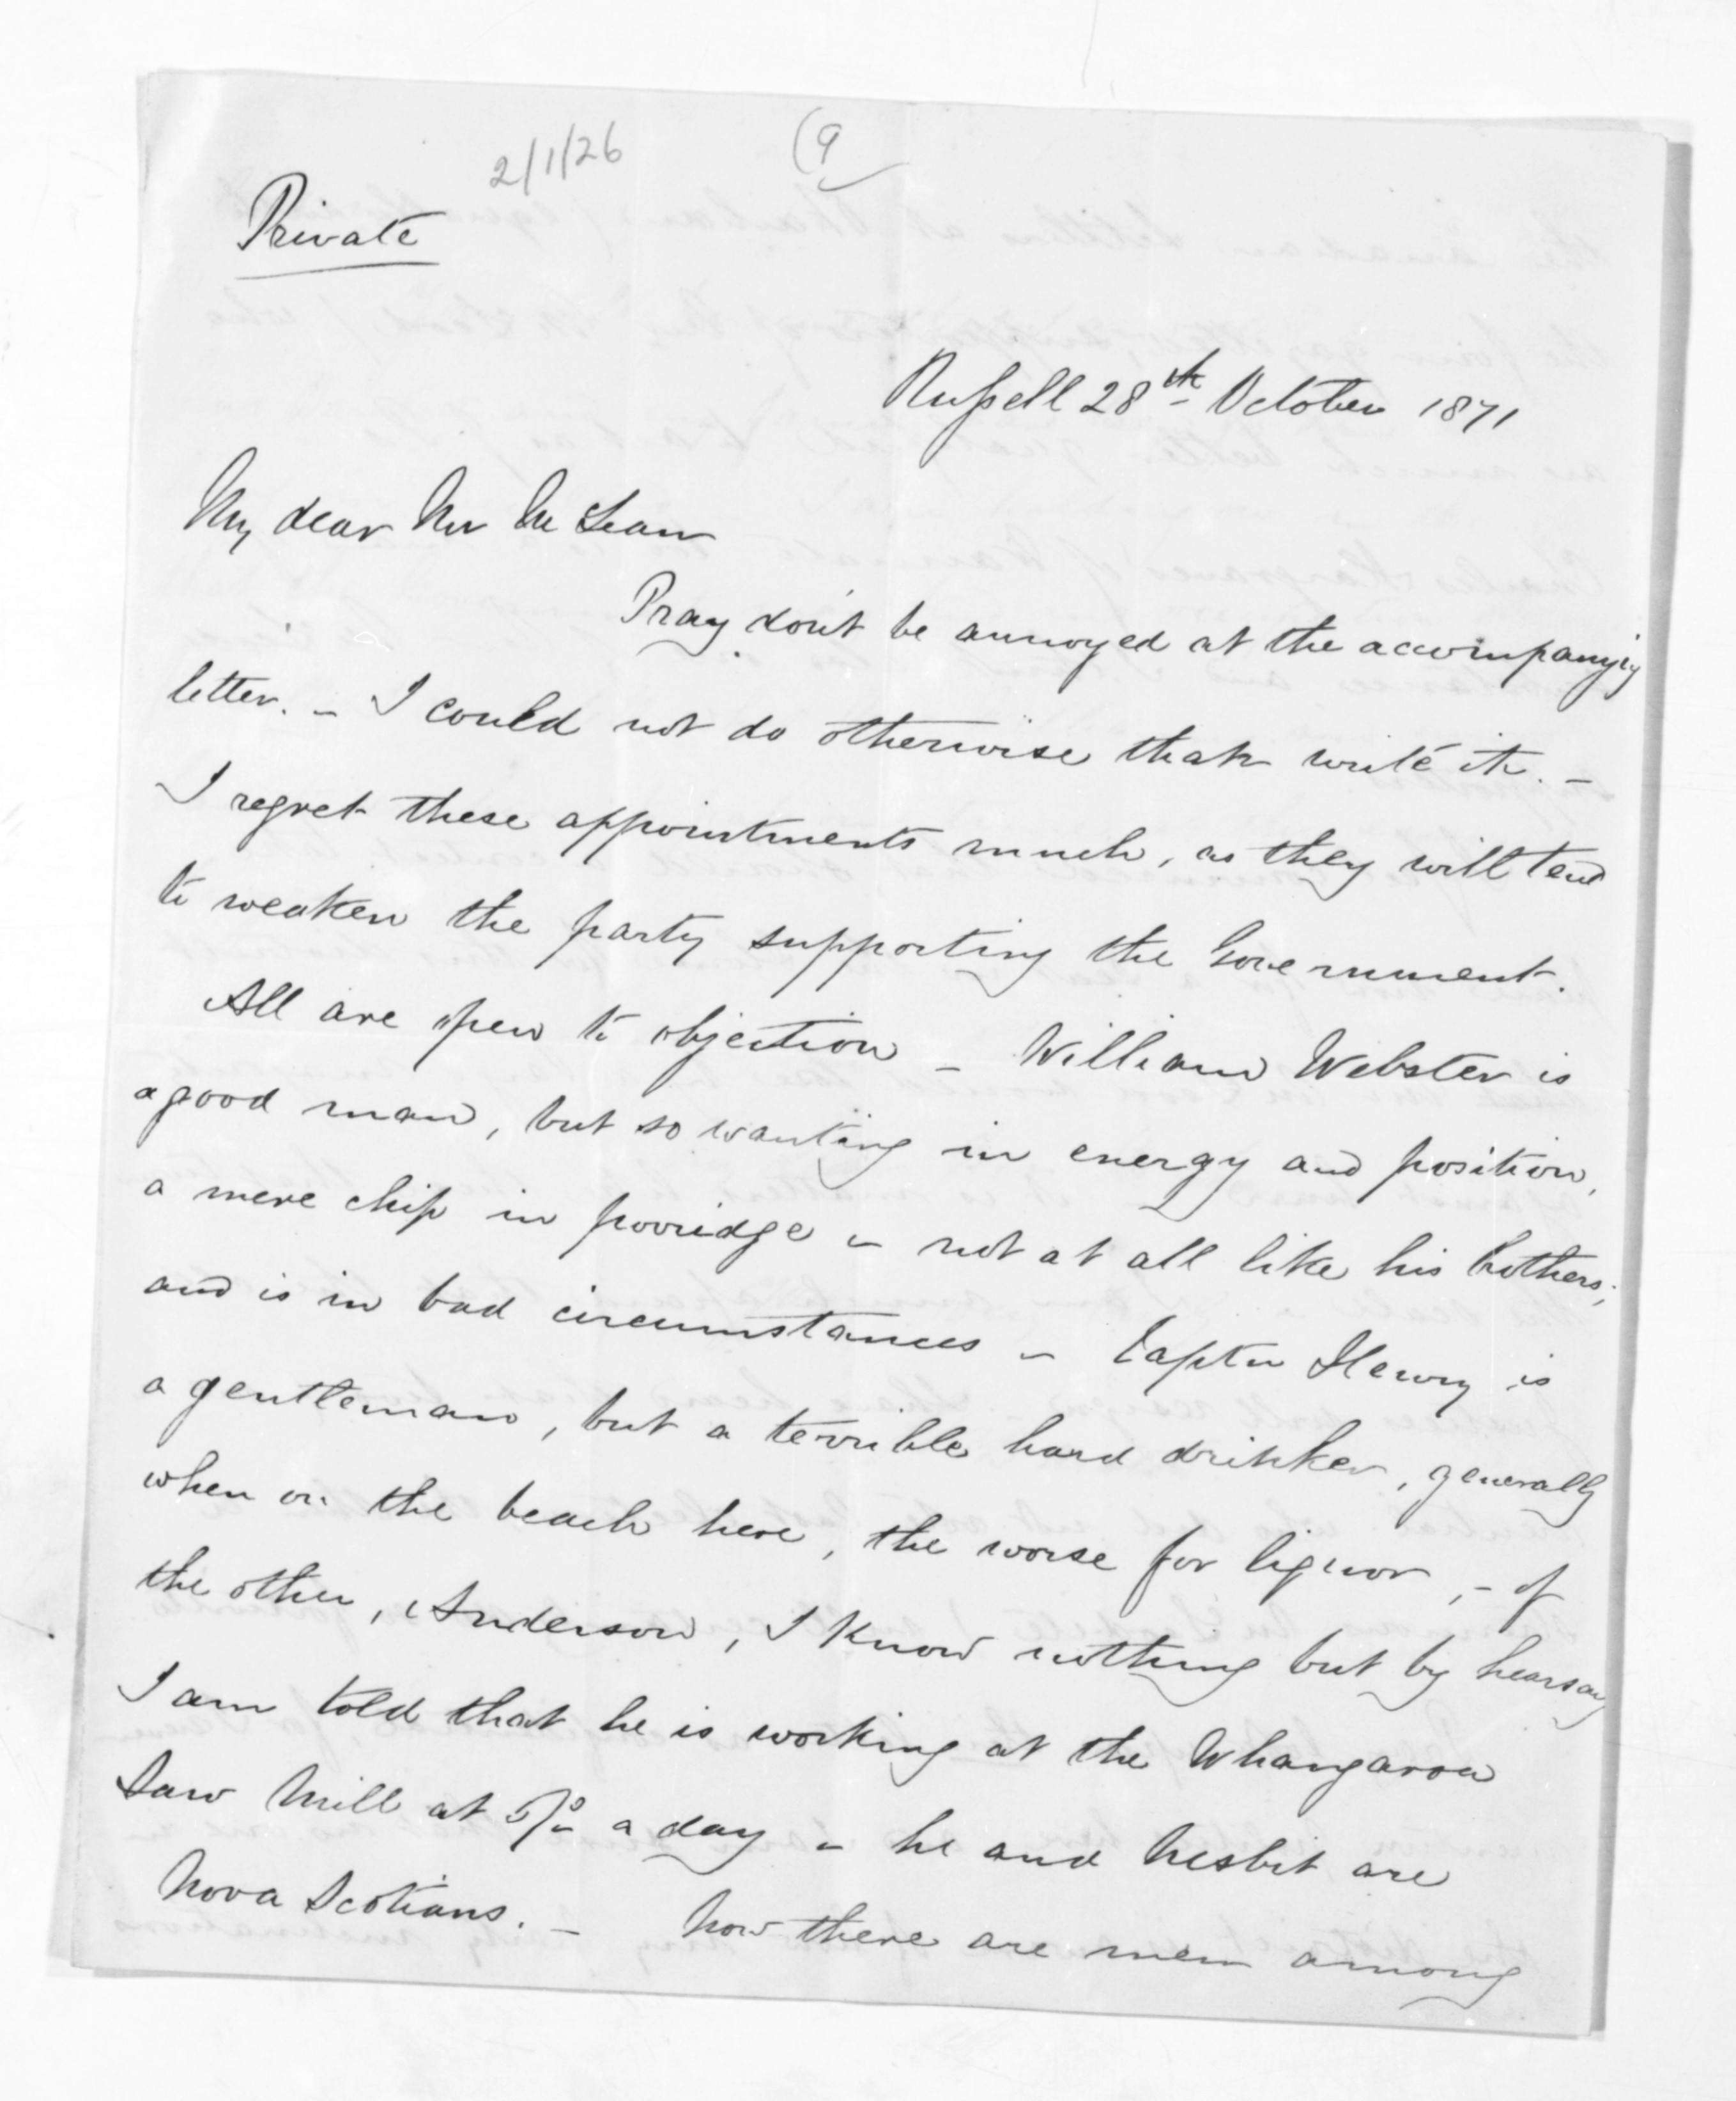 2/1/26
(9
Private
Russell 28th October 1871
My dear Mr McLean
Pray don't be annoyed at the accompanying
letter. – I could not do otherwise than write it. –
I regret these appointments much, as they will tend
to weaken the party supporting the Government.
All are open to objection – William Webster is
a good man, but so wanting in energy and position,
a mere chip in porridge – not at all like his brothers;
and is in bad circumstances – Captn Henry is
a gentleman, but a terrible hard drinker, generally
when on the beach here, the worse for liquor, – of
the other, Anderson, I know nothing but by hearsay
I am told that he is working at the Whangaroa
Saw Mill at a day – he and Nesbit are
Nova Scotians. – Now there are men among